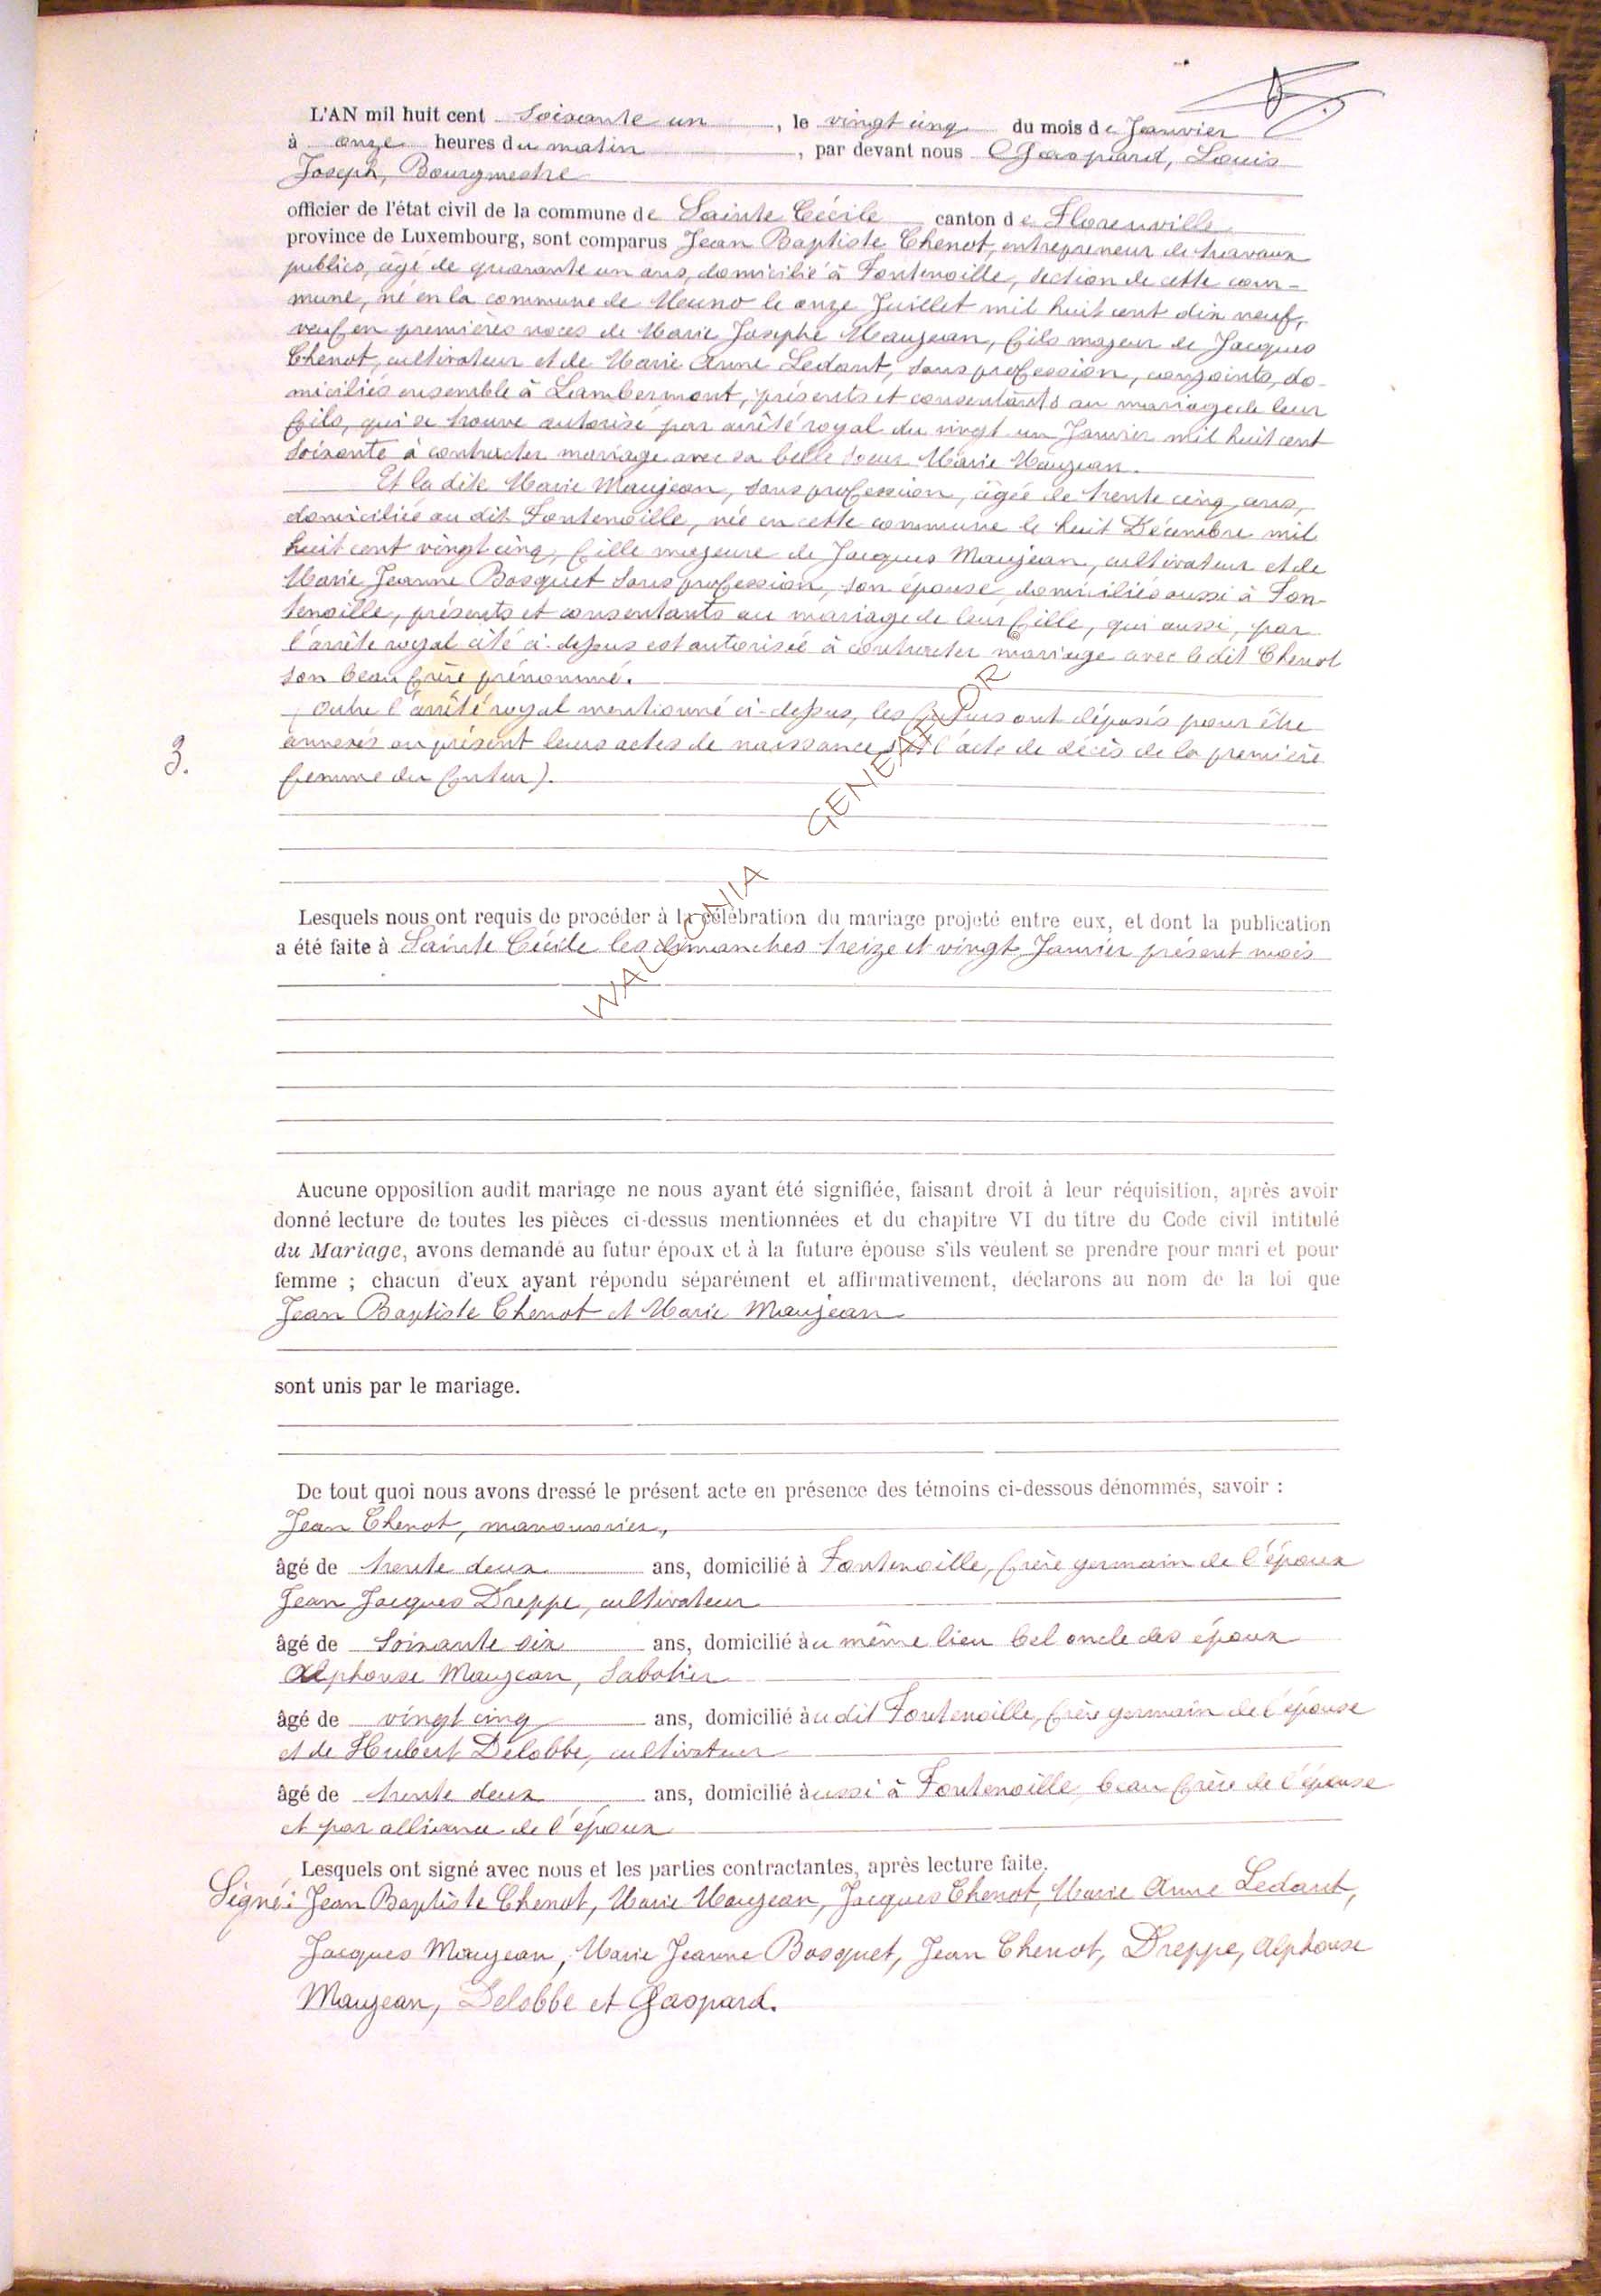 L'AN mil huit cent Soixante un, le vingt cinq du mois de Janvier
à onze heures du matin, par devant nous Gaspard, Louis
Joseph, Bourgmestre
officier de l'état civil de la commune de Sainte Cécile canton de Florenville
province de Luxembourg, sont comparus Jean Baptiste Chenot, entrepreneur de travaux
publics, âgé de quarante un ans, domicilié à Fontenoille, section de cette com-
mune, né en la commune de Muno le onze Juillet mil huit cent dix neuf,
veuf en premières noces de Marie Josephe Maujean, fils majeur de Jacques
Chenot, cultivateur et de Marie Anne Ledant, sans profession, conjoints, do-
miciliés ensemble à Lambermont, présents et consentants au mariage de leur
fils, qui se trouve autorisé par arrêté royal du vingt un Janvier mil huit cent
soixante à contracter mariage avec sa belle soeur Marie Maujean.
Et la dite Marie Maujean, sans profession, âgée de trente cinq ans,
domiciliée au dit Fontenoille, née en cette commune le huit Décembre mil
huit cent vingt cinq, fille majeure de Jacques Maujean, cultivateur et de
Marie Jeanne Bosquet sans profession, son épouse, domiciliés aussi à Fon-
tenoille, présents et consentants au mariage de leur fille, qui aussi, par
l'arrêté royal cité ci-dessus est autorisée à contracter mariage avec le dit Chenot
son beau frère prénommé.
Outre l'arrêté royal mentionné ci-dessus, les futurs ont déposés pour être
annexés au présent leurs actes de naissance, et l'acte de décès de la première
3.
femme du futur).
WALLONIA GENEALOR
Lesquels nous ont requis de procéder à la célébration du mariage projeté entre eux, et dont la publication
a été faite à Sainte Cécile les dimanches treize et vingt Janvier présent mois
Aucune opposition audit mariage ne nous ayant été signifiée, faisant droit à leur réquisition, après avoir
donné lecture de toutes les pièces ci-dessus mentionnées et du chapitre VI du titre du Code civil intitulé
du Mariage, avons demandé au futur époux et à la future épouse s'ils veulent se prendre pour mari et pour
femme ; chacun d'eux ayant répondu séparément et affirmativement, déclarons au nom de la loi que
Jean Baptiste Chenot et Marie Maujean
sont unis par le mariage.
De tout quoi nous avons dressé le présent acte en présence des témoins ci-dessous dénommés, savoir :
Jean Chenot, manouvrier,
âgé de trente deux ans, domicilié à Fontenoille, frère germain de l'époux
Jean Jacques Dreppe, cultivateur
âgé de soixante six ans, domicilié au même lieu bel oncle des époux
Alphonse Maujean, Sabotier
âgé de vingt cinq ans, domicilié au dit Fontenoille, frère germain de l'épouse
et de Hubert Delobbe, cultivateur
âgé de trente deux ans, domicilié aussi à Fontenoille, beau frère de l'épouse
et par alliance de l'époux
Lesquels ont signé avec nous et les parties contractantes, après lecture faite.
Signé: Jean Baptiste Chenot, Marie Maujean, Jacques Chenot, Marie Anne Ledant,
Jacques Maujean, Marie Jeanne Bosquet, Jean Chenot, Dreppe, Alphonse
Maujean, Delobbe et Gaspard.